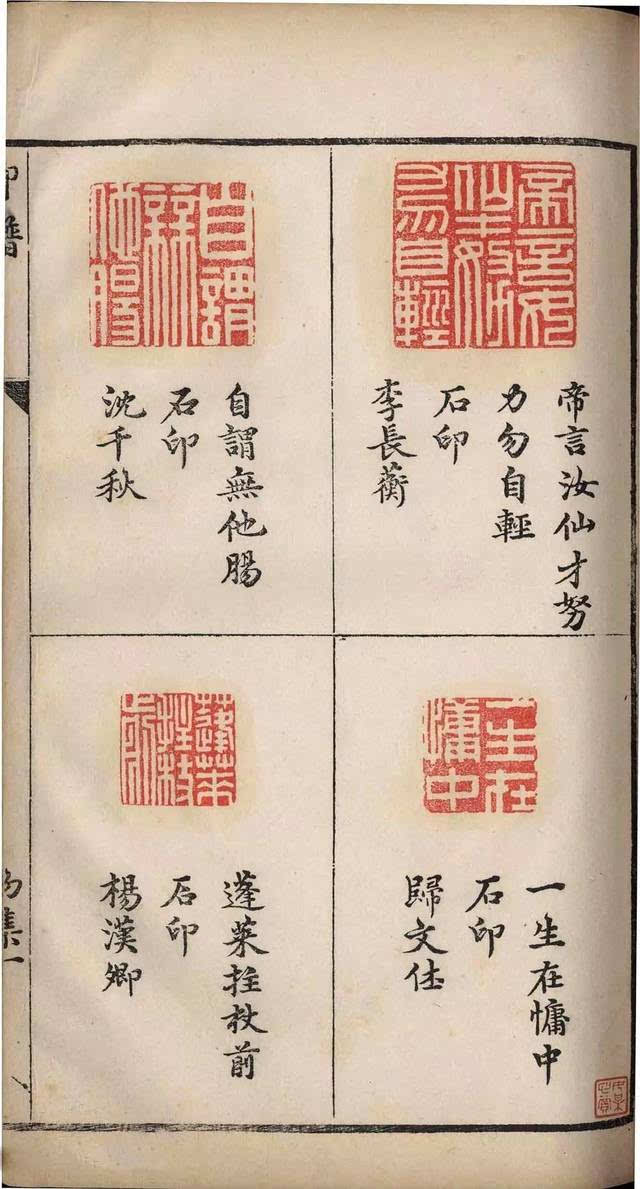 帝言汝仙才努
力勿自輕
石印
李長蘅
自謂無他腸
石印
沈千秋
一生在慵中
石印
歸文休
蓬萊拄杖前
石印
楊漢卿
印譜